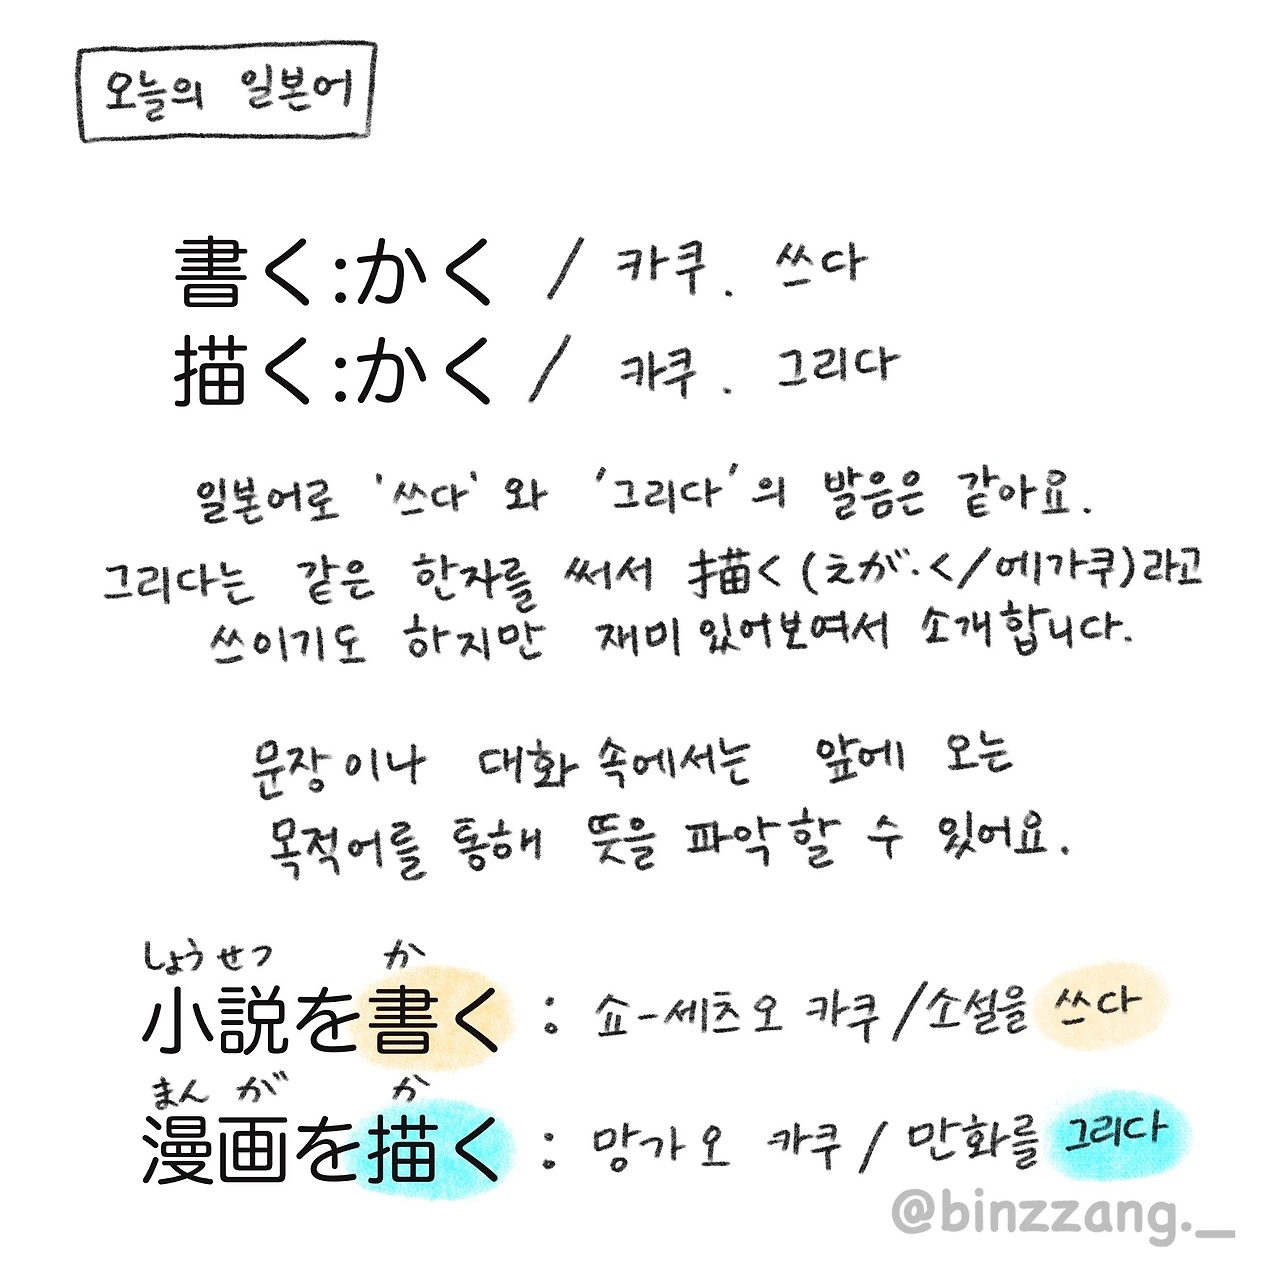 오늘의 일본어
書く:かく / 카쿠. 쓰다
描く:かく / 카쿠. 그리다
일본어로 '쓰다' 와 '그리다'의 발음은 같아요.
그리다는 같은 한자를 써서 描く(えが·く/에가쿠)라고
쓰이기도 하지만 재미있어보여서 소개합니다.
문장이나 대화 속에서는 앞에 오는
목적어를 통해 뜻을 파악할 수 있어요.
しょうせつ か
小説を書く : 쇼-세츠오 카쿠/소설을 쓰다
まん が か
漫画を描く : 망가오 카쿠/만화를 그리다
@binzzang._